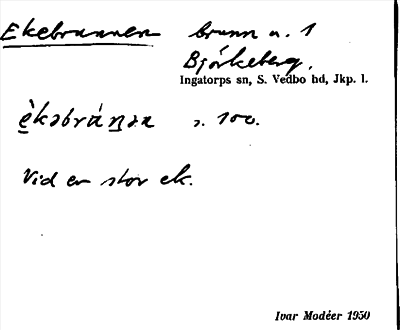 Ekebrunnen brunn n. 1
Björkeberg.
Ingatorps sn, S. Vedbo hd, Jkp. l.
s. 100.
Vid en stor ek.
Ivar Modéer 1950